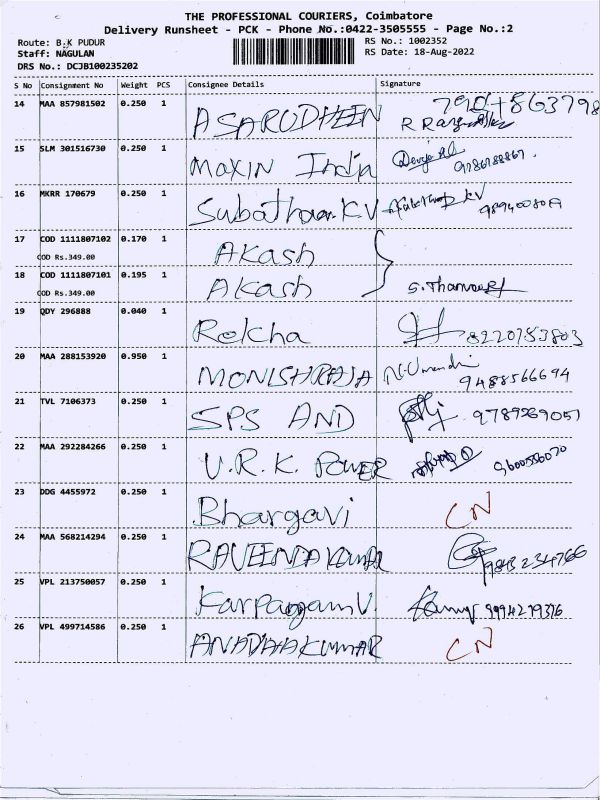 THE PROFESSIONAL COURIERS, Coimbatore
Delivery Runsheet - PCK - Phone No.:0422-3505555 - Page No.:2
Route: B.K PUDUR RS No.: 1002352
Staff: NAGULAN RS Date: 18-Aug-2022
DRS No.: DCJB100235202
S No Consignment No Weight PCS Consignee Details Signature
14 MAA 857981502 0.250 1 ASARUDHEEN
15 SLM 301516730 0.250 1 MAXIN India 9786788867.
16 MKRR 170679 0.250 1 K V
17 COD 1111807102 0.170 1 AKash
COD Rs.349.00
18 COD 1111807101 0.195 1 AKash
COD Rs.349.00
19 QDY 296888 0.040 1 Rekha 8220753803
20 MAA 288153920 0.950 1 MONISHRAJA 9488566694
21 TVL 7106373 0.250 1 SPS AND 9789269051
22 MAA 292284266 0.250 1 V.R.K. POWER 9600556070
23 DDG 4455972 0.250 1 Bhargavi CN
24 MAA 568214294 0.250 1 9843234766
25 VPL 213750057 0.250 1 9994279376
26 VPL 499714586 0.250 1 CN